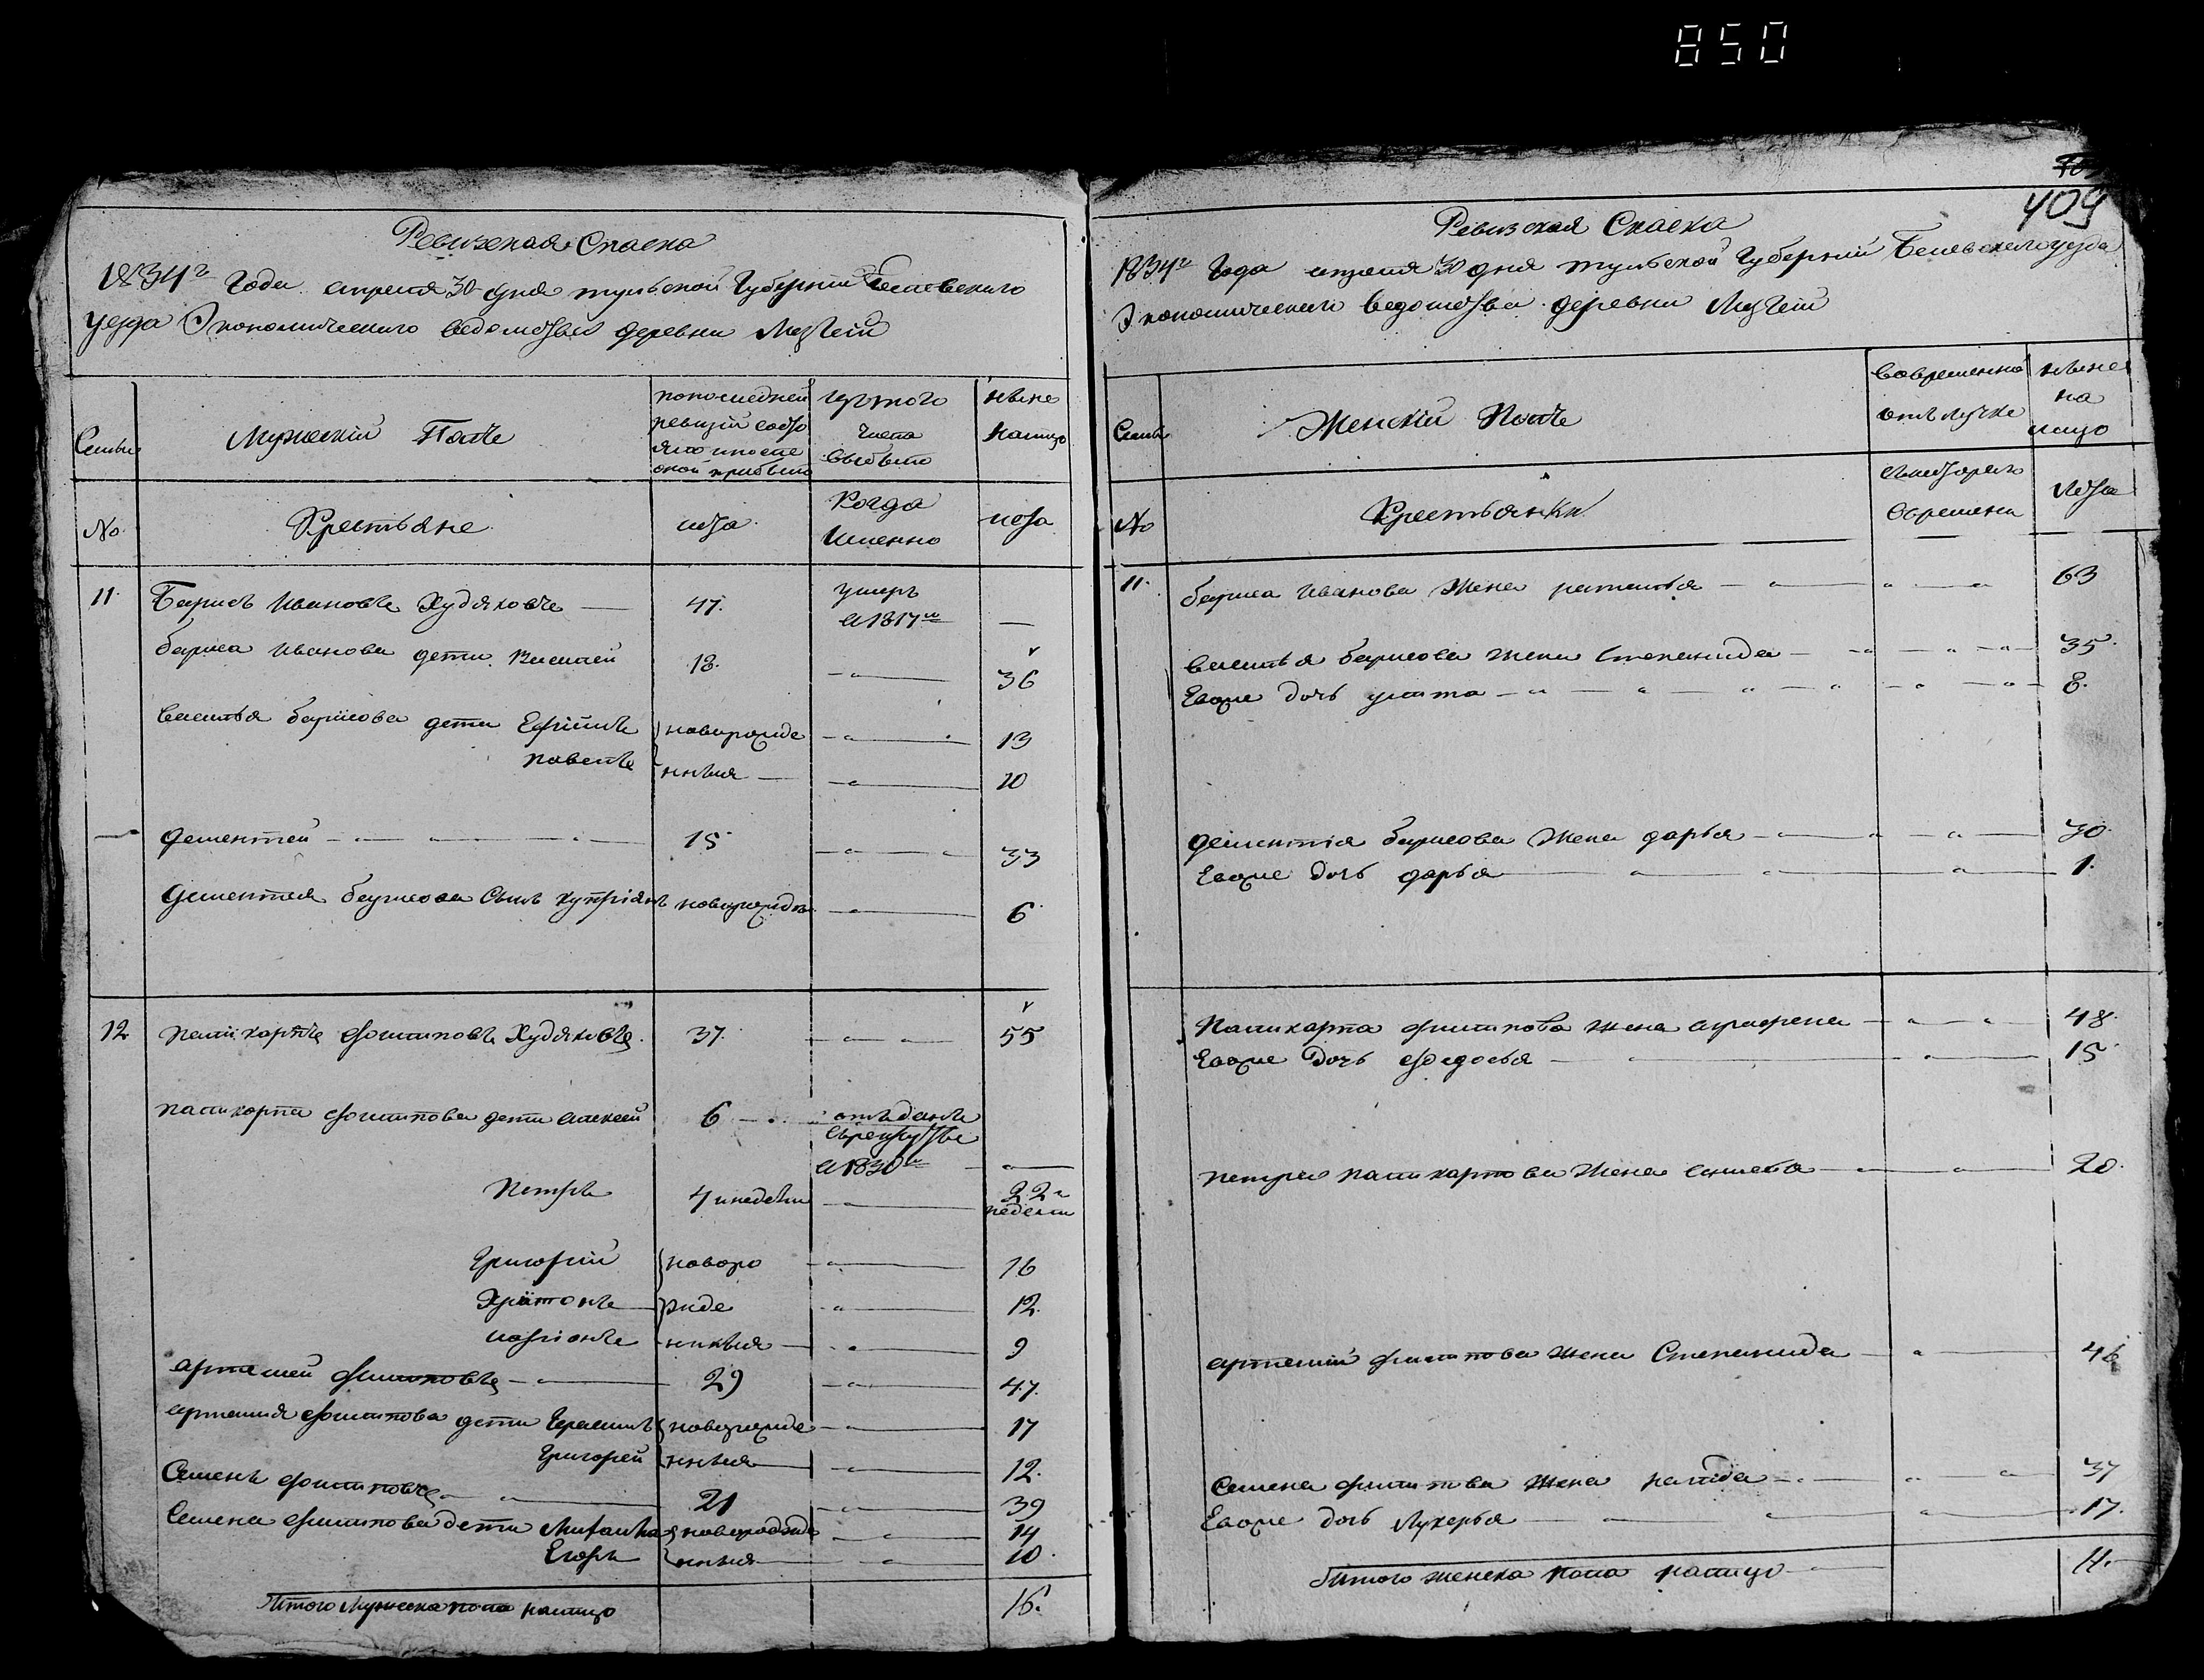 850
409
Ревизская Сказка
1834го Года апреля 30 дня тульской Губернии Белевского
уезда Экономического ведомства деревни
Семьи
Мужеский Полъ
попоследней
ревизии состо
яло и после
оной прибыло
изтого
числа
выбыло
ныне
налицо
№
Крестьяне
лета
Когда
именно
лета
11 Борисъ Ивановъ Худяковъ 47. умеръ
в 1817м
бориса иванова дети василей 18. 36
василья борисова дети Ефимъ новорожде 13
павелъ нныя 10
дементей 15 33
дементея борисова сынъ куприянъ новорожд 6
12 поликарпъ филиповъ Худяковъ 37. 55
поликарпа филипова дети алексей 6 отъданъ
в рекрутъ
в 1830м
Петръ 4 недели 22
недели
Григорий новоро 16
Харитонъ жде 12
нныя 9
артемей филиповъ 29 47.
артемия филипова дети Герасимъ новорожде 17
Григорей нныя 12.
Семенъ филиповъ 21 39
Семена филипова дети Михаила новорожде 14
Егоръ нныя 10.
Итого Мужеска пола налицо 16.
Ревизская Сказка
1834го Года апреля 30 дня тульской Губернии Белевского уезда
Экономического ведомства деревни
Семьи
Женский Полъ
вовременной
отлучке
ныне
на
лицо
№
Крестьянки
времени
лета
11. бориса иванова жена 63
василья борисова жена Степанида 35
Евоже дочь улита 8.
дементия борисова жена дарья 30.
Евоже дочь дарья 1.
Поликарпа филипова жена аграфена 48.
Евоже дочь федосья 15
петра поликарпова жена 20.
артемия филипова жена Степанида 46
Семена филипова жена 37
Евоже дочь Лукерья 17.
Итого женска пола налицо 11.